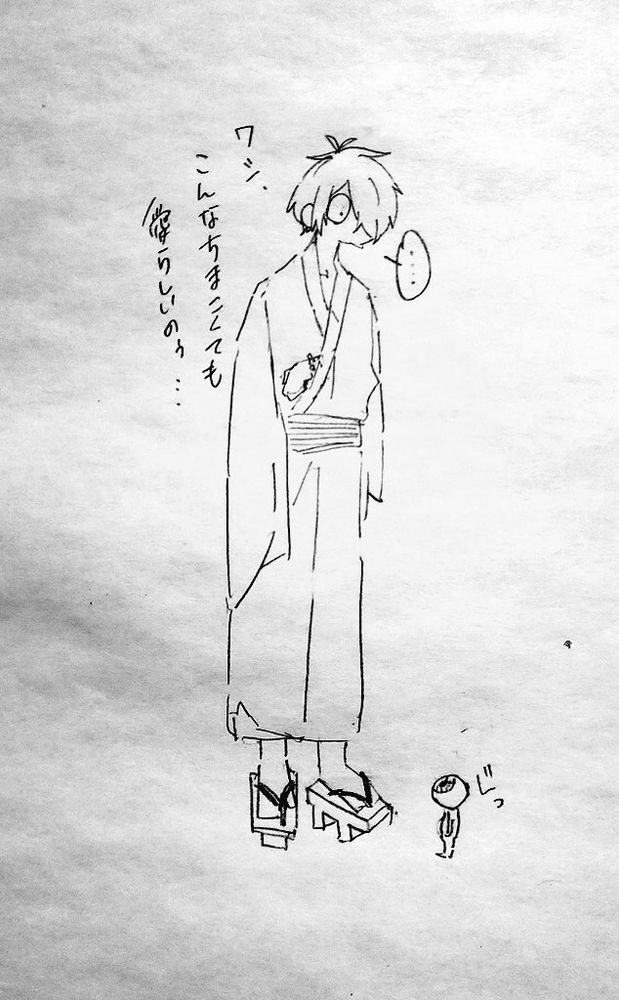 ワシ、
こんなちまこくても
愛らしいのぅ…
……
じっ